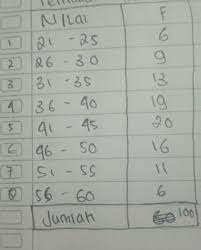 Nilai F
1 21 - 25 6
2 26 - 30 9
3 31 - 35 13
4 36 - 40 19
5 41 - 45 20
6 46 - 50 16
7 51 - 55 11
8 56 - 60 6
Jumlah 100